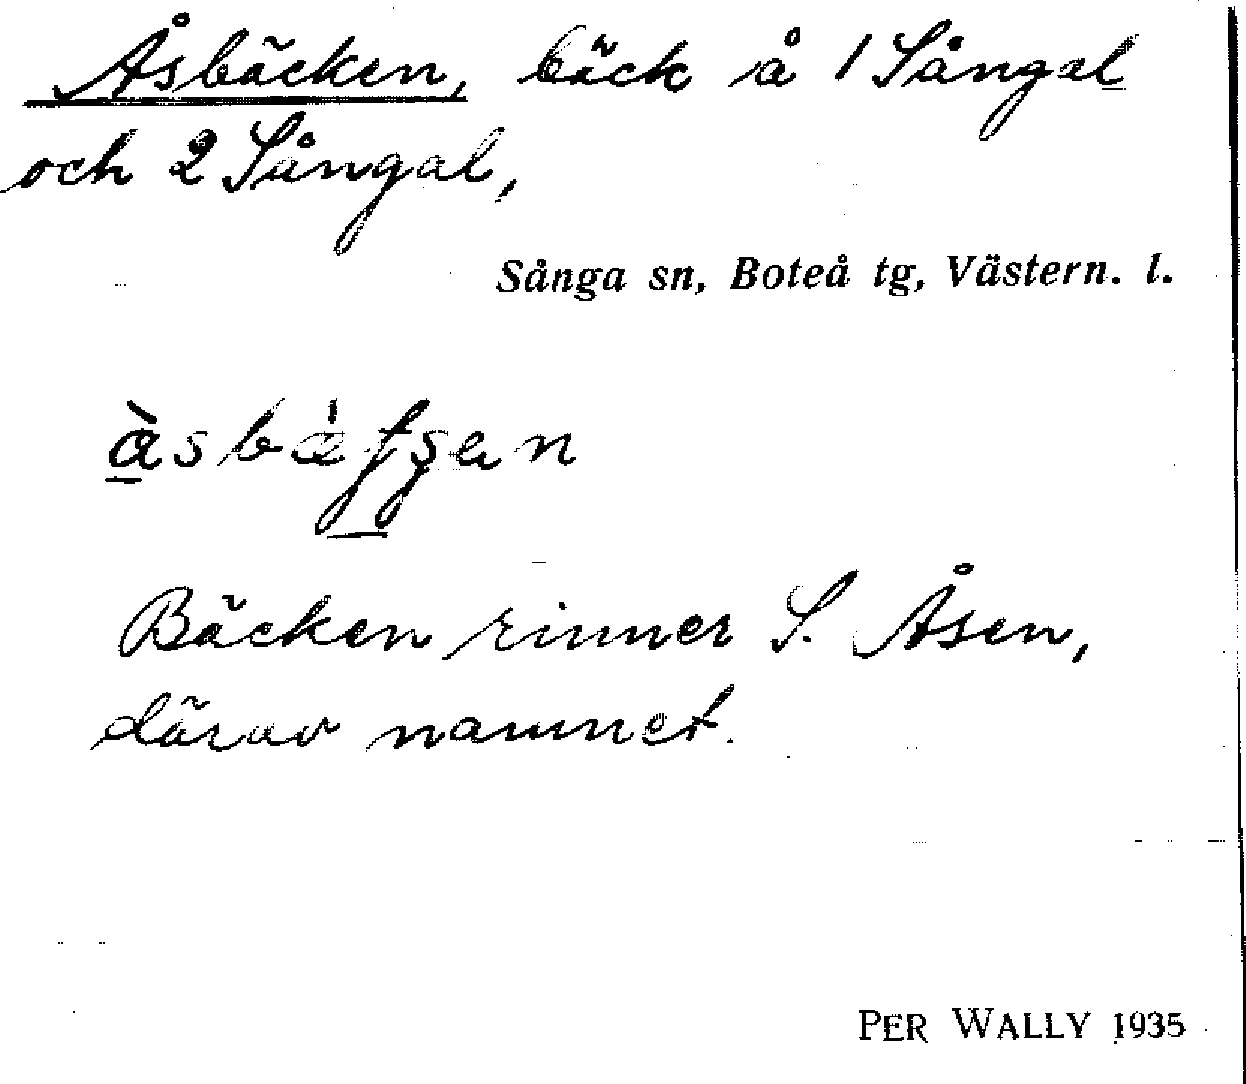 Åsbäcken, bäck å 1 Sångal
och 2 Sångal,
Sånga sn, Boteå tg, Västern. l.
Bäcken rinner S. Åsen,
därav namnet.
PER WALLY 1935